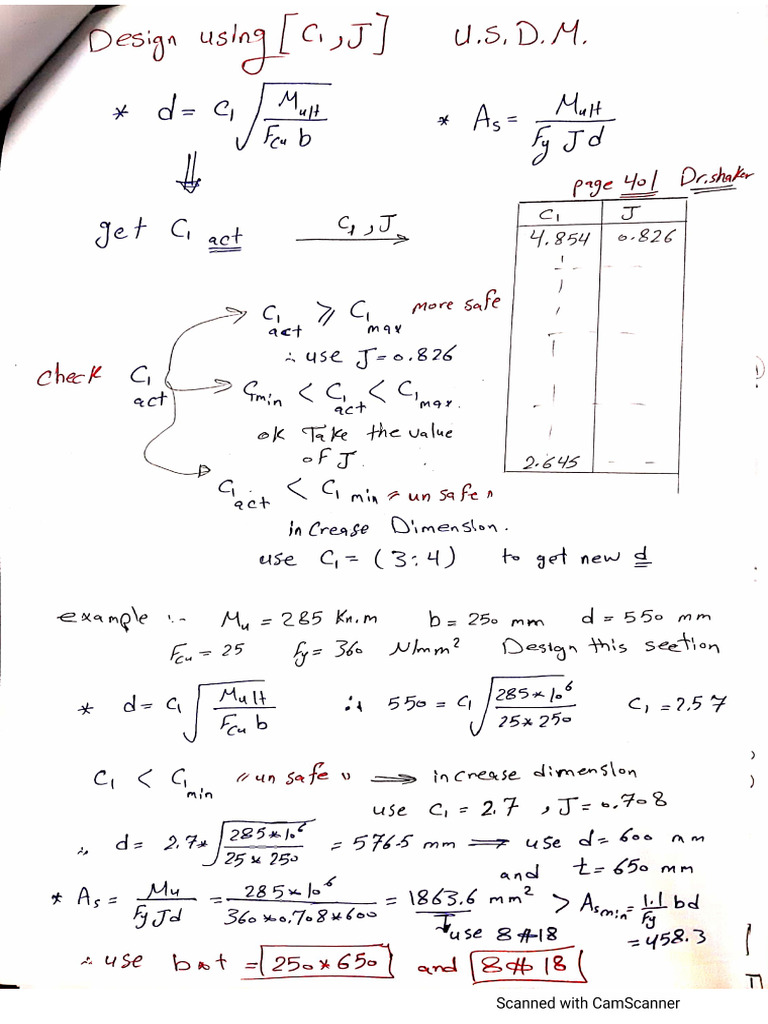 Design using [C1, J] U.S.D.M.
* d = C1 √(Mult / Fcu b) * As = Mult / Fy J d
page 401 Dr.shaker
get C1 act C1, J
C1 J
4.854 0.826
2.645 - -
check C1 act
C1 act ≥ C1 max more safe
∴ use J = 0.826
C1 min < C1 act < C1 max.
ok Take the value
of J.
C1 act < C1 min "un safe"
increase Dimension.
use C1 = (3:4) to get new d
example :- Mu = 285 Kn.m b = 250 mm d = 550 mm
Fcu = 25 fy = 360 N/mm² Design this section
* d = C1 √(Mult / Fcu b) ∴ 550 = C1 √(285*10^6 / 25*250) C1 = 2.57
C1 < C1 min "un safe" ⇒ increase dimension
use C1 = 2.7 , J = 0.708
∴ d = 2.7* √(285*10^6 / 25*250) = 576.5 mm ⇒ use d = 600 mm
and t = 650 mm
* As = Mu / Fy J d = 285*10^6 / 360*0.708*600 = 1863.6 mm² > As min = 1.1/Fy bd
use 8#18 = 458.3
∴ use b*t = 250*650 and 8#18
Scanned with CamScanner